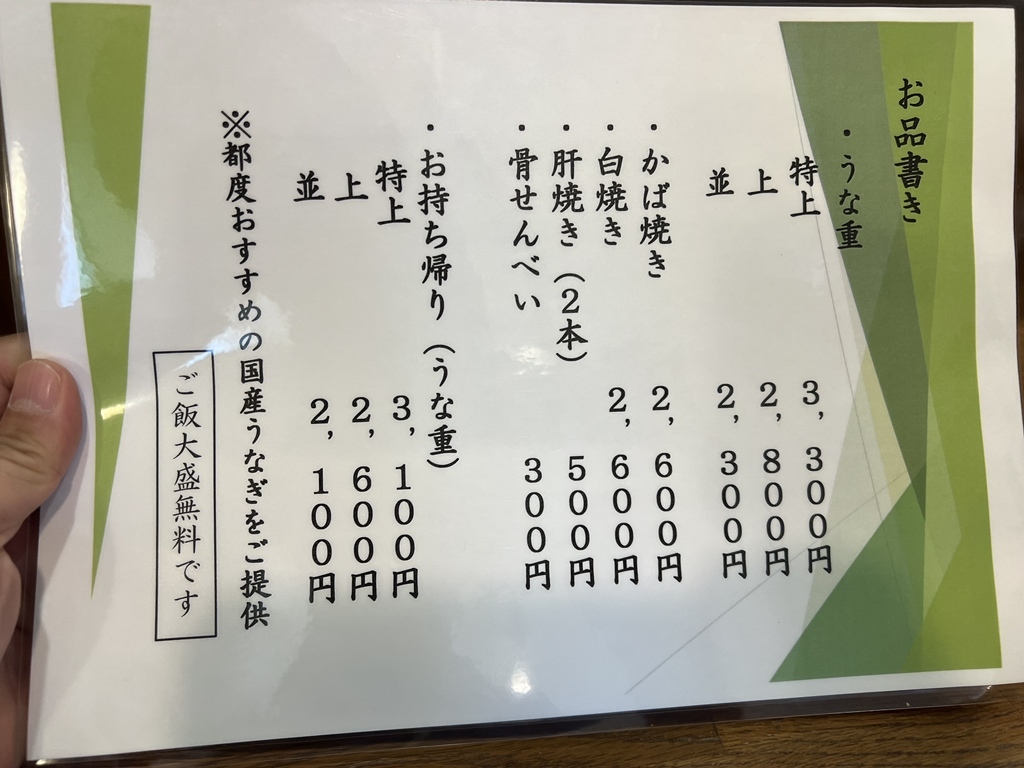 お品書き
・うな重
特上 3,300円
上 2,800円
並 2,300円
・かば焼き 2,600円
・白焼き 2,600円
・肝焼き（2本） 500円
・骨せんべい 300円
・お持ち帰り（うな重）
特上 3,100円
上 2,600円
並 2,100円
※都度おすすめの国産うなぎをご提供
ご飯大盛無料です